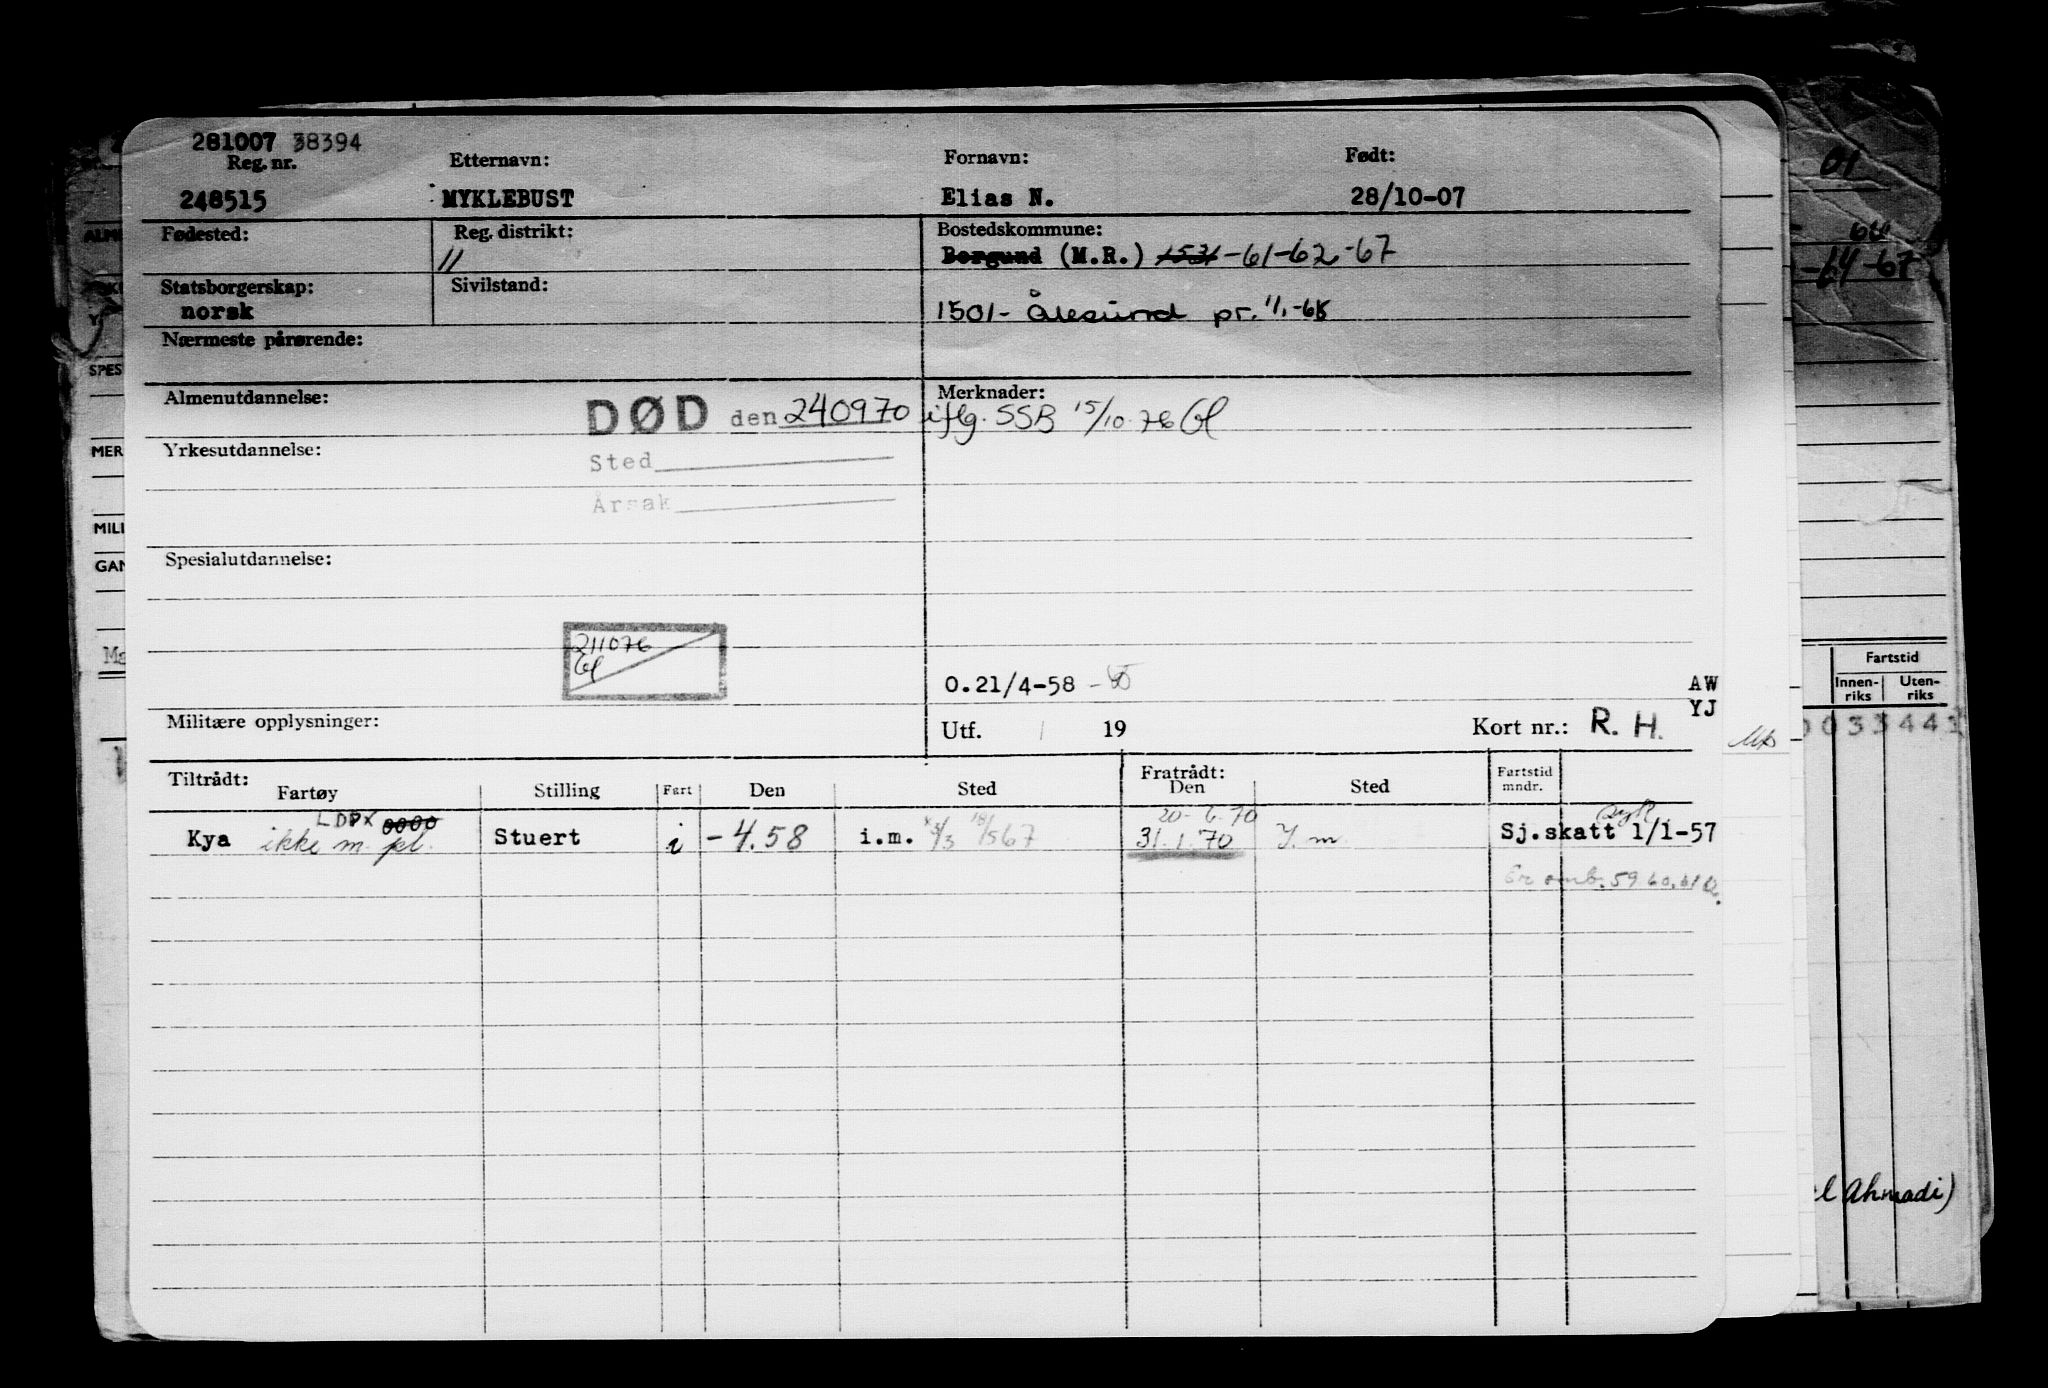 281007 38394
Reg. nr. Etternavn: Fornavn: Født:
248515 MYKLEBUST Elias N. 28/10-07
Fødested: Reg. distrikt: Bostedskommune:
11 Borgund (M.R.) 1531-61-62-67
Statsborgerskap: Sivilstand:
norsk 1501- Ålesund pr. 1/1-68
Nærmeste pårørende:
Almenutdannelse: Merknader:
DØD den 240970 iflg. SSB 15/10-76
Yrkesutdannelse:
Sted
Årsak
Spesialutdannelse:
211076
O.21/4-58
AW
YJ
Militære opplysninger: Utf. / 19 Kort nr.: R. H.
Tiltrådt: Fratrådt: Fartstid
Fartøy Stilling Fart Den Sted Den Sted mndr.
LDPX 0000 20-6.70
Kya ikke m. Stuert i -4.58 i.m. 31.1.70 I.m. Sj.skatt 1/1-57
Er omb. 59 60.61
01
-64-67
ALM
SPES
MER
MILI
GAN
Ma
Fartstid
Innen-riks Uten-riks
003344
l Ahmadi)